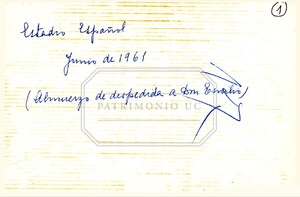 1
Estadio Español
Junio de 1961
(Almuerzo de despedida a Don Emilio)
PATRIMONIO UC